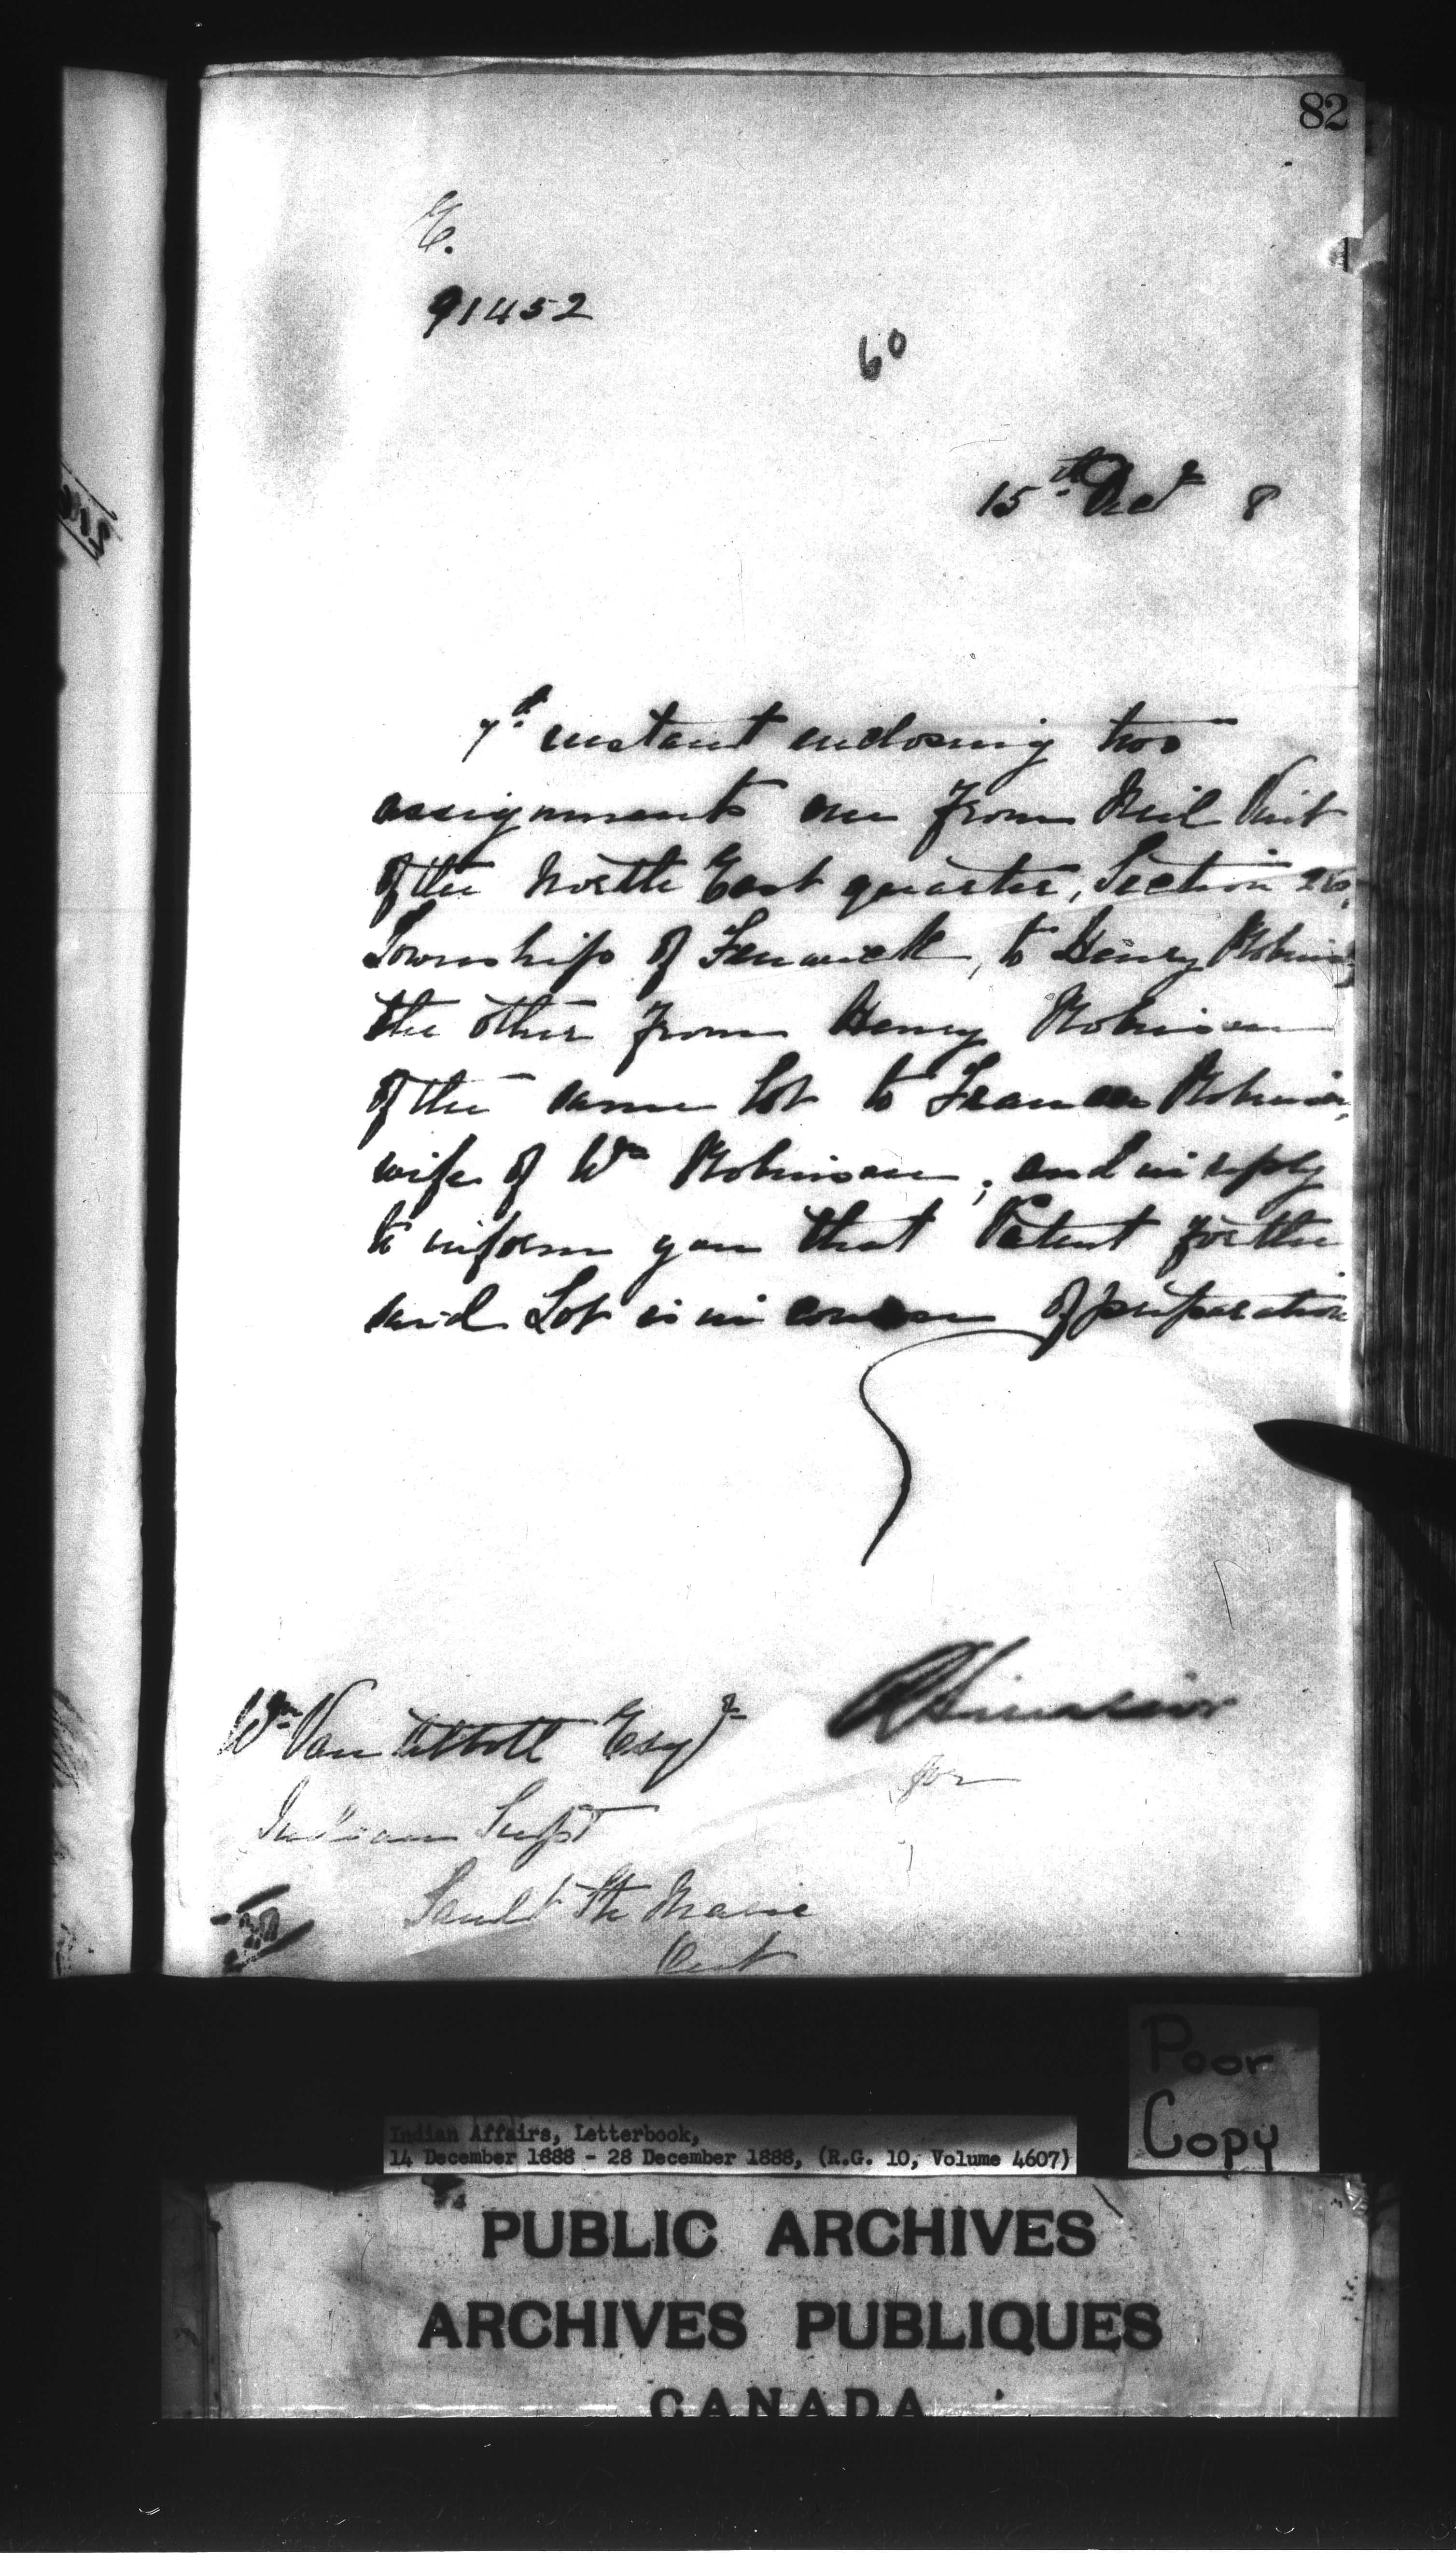 82
E.
91452
60
15th Decr 8
7th instant enclosing two
assignments one from Neil
of the North East quarter, Section
Township of Fenwick, to Henry Robinson
the other from Henry Robinson
of the same lot to Frances Robinson,
wife of Wm Robinson, and in reply
to inform you that Patent for the
said Lot is in course of preparation
R Sinclair
for
Wm Van Abbott Esqr
Indian Supt
Sault Ste Marie
Ont
Poor
Copy
Indian Affairs, Letterbook,
14 December 1888 - 28 December 1888, (R.G. 10, Volume 4607)
PUBLIC ARCHIVES
ARCHIVES PUBLIQUES
CANADA